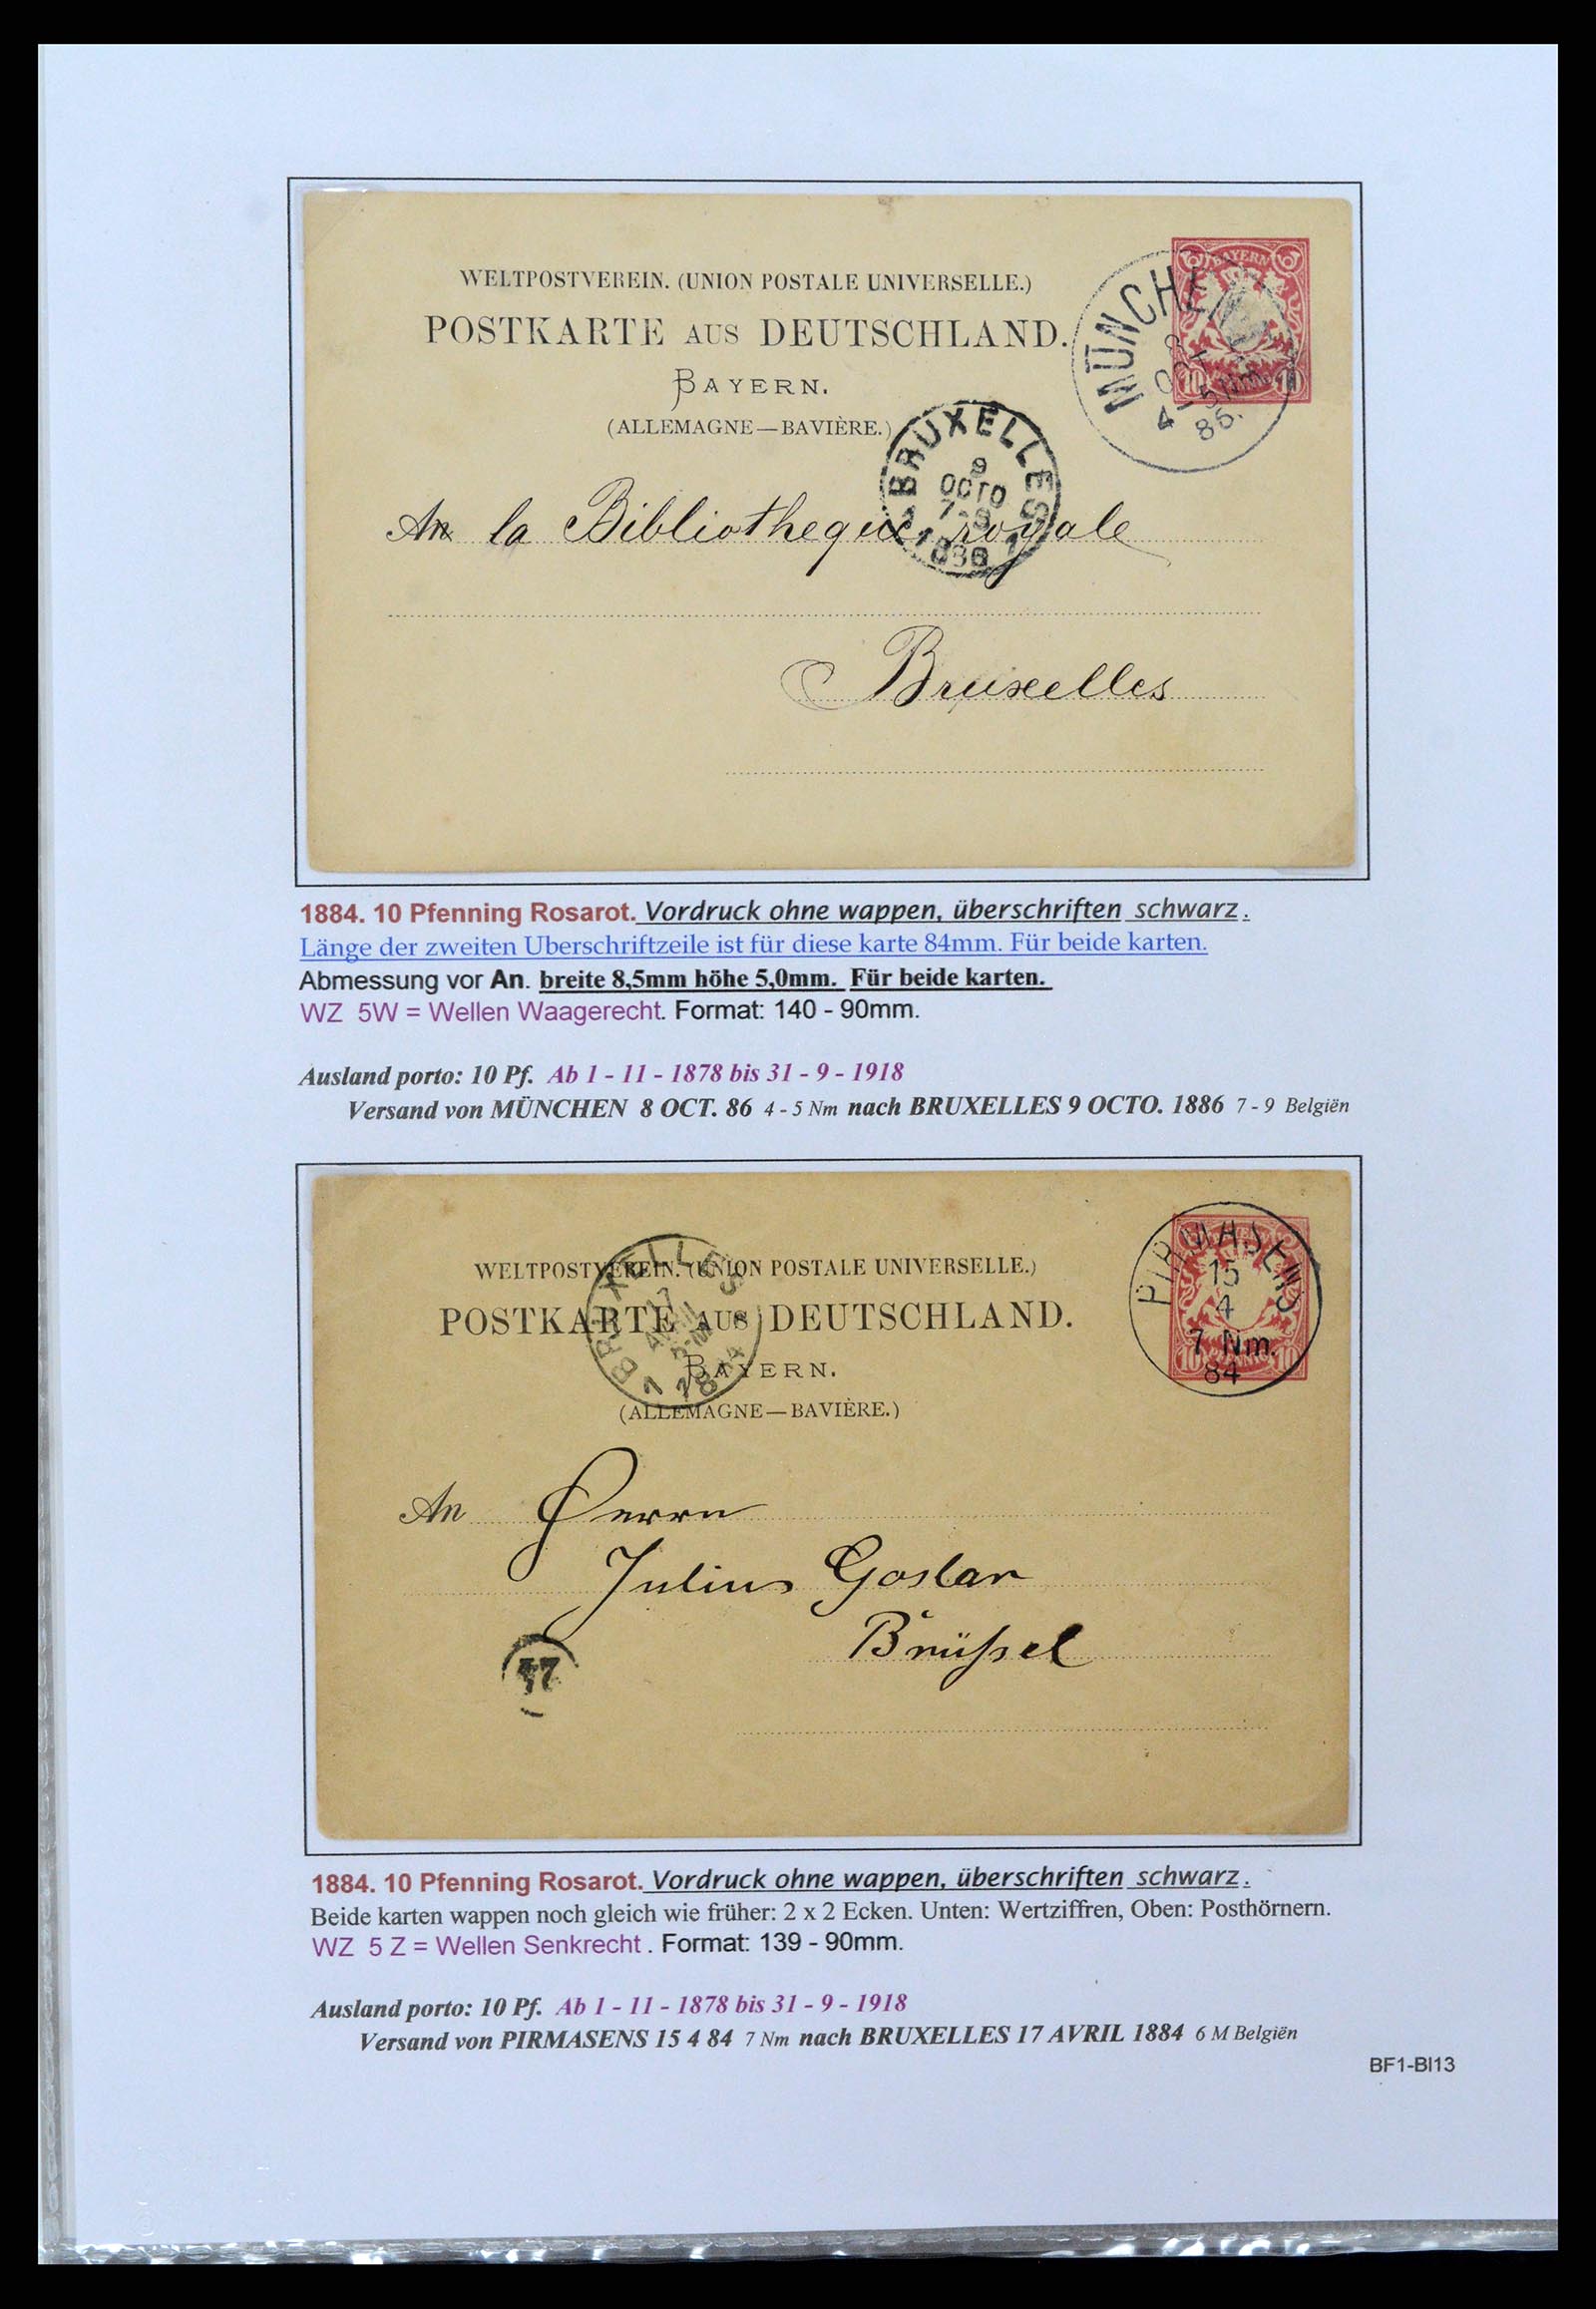 WELTPOSTVEREIN. (UNION POSTALE UNIVERSELLE.)
POSTKARTE AUS DEUTSCHLAND.
BAYERN.
(ALLEMAGNE—BAVIÈRE.)
BAYERN
10 10
MÜNCHEN
8
OCT
4-5 Nm.
86.
BRUXELLES
9
OCTO
7-9
1886
An la Bibliotheque royale
Bruxelles
1884. 10 Pfenning Rosarot. Vordruck ohne wappen, überschriften schwarz.
Länge der zweiten Uberschriftzeile ist für diese karte 84mm. Für beide karten.
Abmessung vor An. breite 8,5mm höhe 5,0mm. Für beide karten.
WZ 5W = Wellen Waagerecht. Format: 140 - 90mm.
Ausland porto: 10 Pf. Ab 1 - 11 - 1878 bis 31 - 9 - 1918
Versand von MÜNCHEN 8 OCT. 86 4 - 5 Nm nach BRUXELLES 9 OCTO. 1886 7 - 9 Belgiën
WELTPOSTVEREIN. (UNION POSTALE UNIVERSELLE.)
POSTKARTE AUS DEUTSCHLAND.
BAYERN.
(ALLEMAGNE—BAVIÈRE.)
PIRMASENS
15
4
7 Nm.
84
10 10
BRUXELLES
17
AVRIL
1884
An Herrn
Julius Goslar
Brüssel
37
1884. 10 Pfenning Rosarot. Vordruck ohne wappen, überschriften schwarz.
Beide karten wappen noch gleich wie früher: 2 x 2 Ecken. Unten: Wertziffren, Oben: Posthörnern.
WZ 5 Z = Wellen Senkrecht . Format: 139 - 90mm.
Ausland porto: 10 Pf. Ab 1 - 11 - 1878 bis 31 - 9 - 1918
Versand von PIRMASENS 15 4 84 7 Nm nach BRUXELLES 17 AVRIL 1884 6 M Belgiën
BF1-Bl13